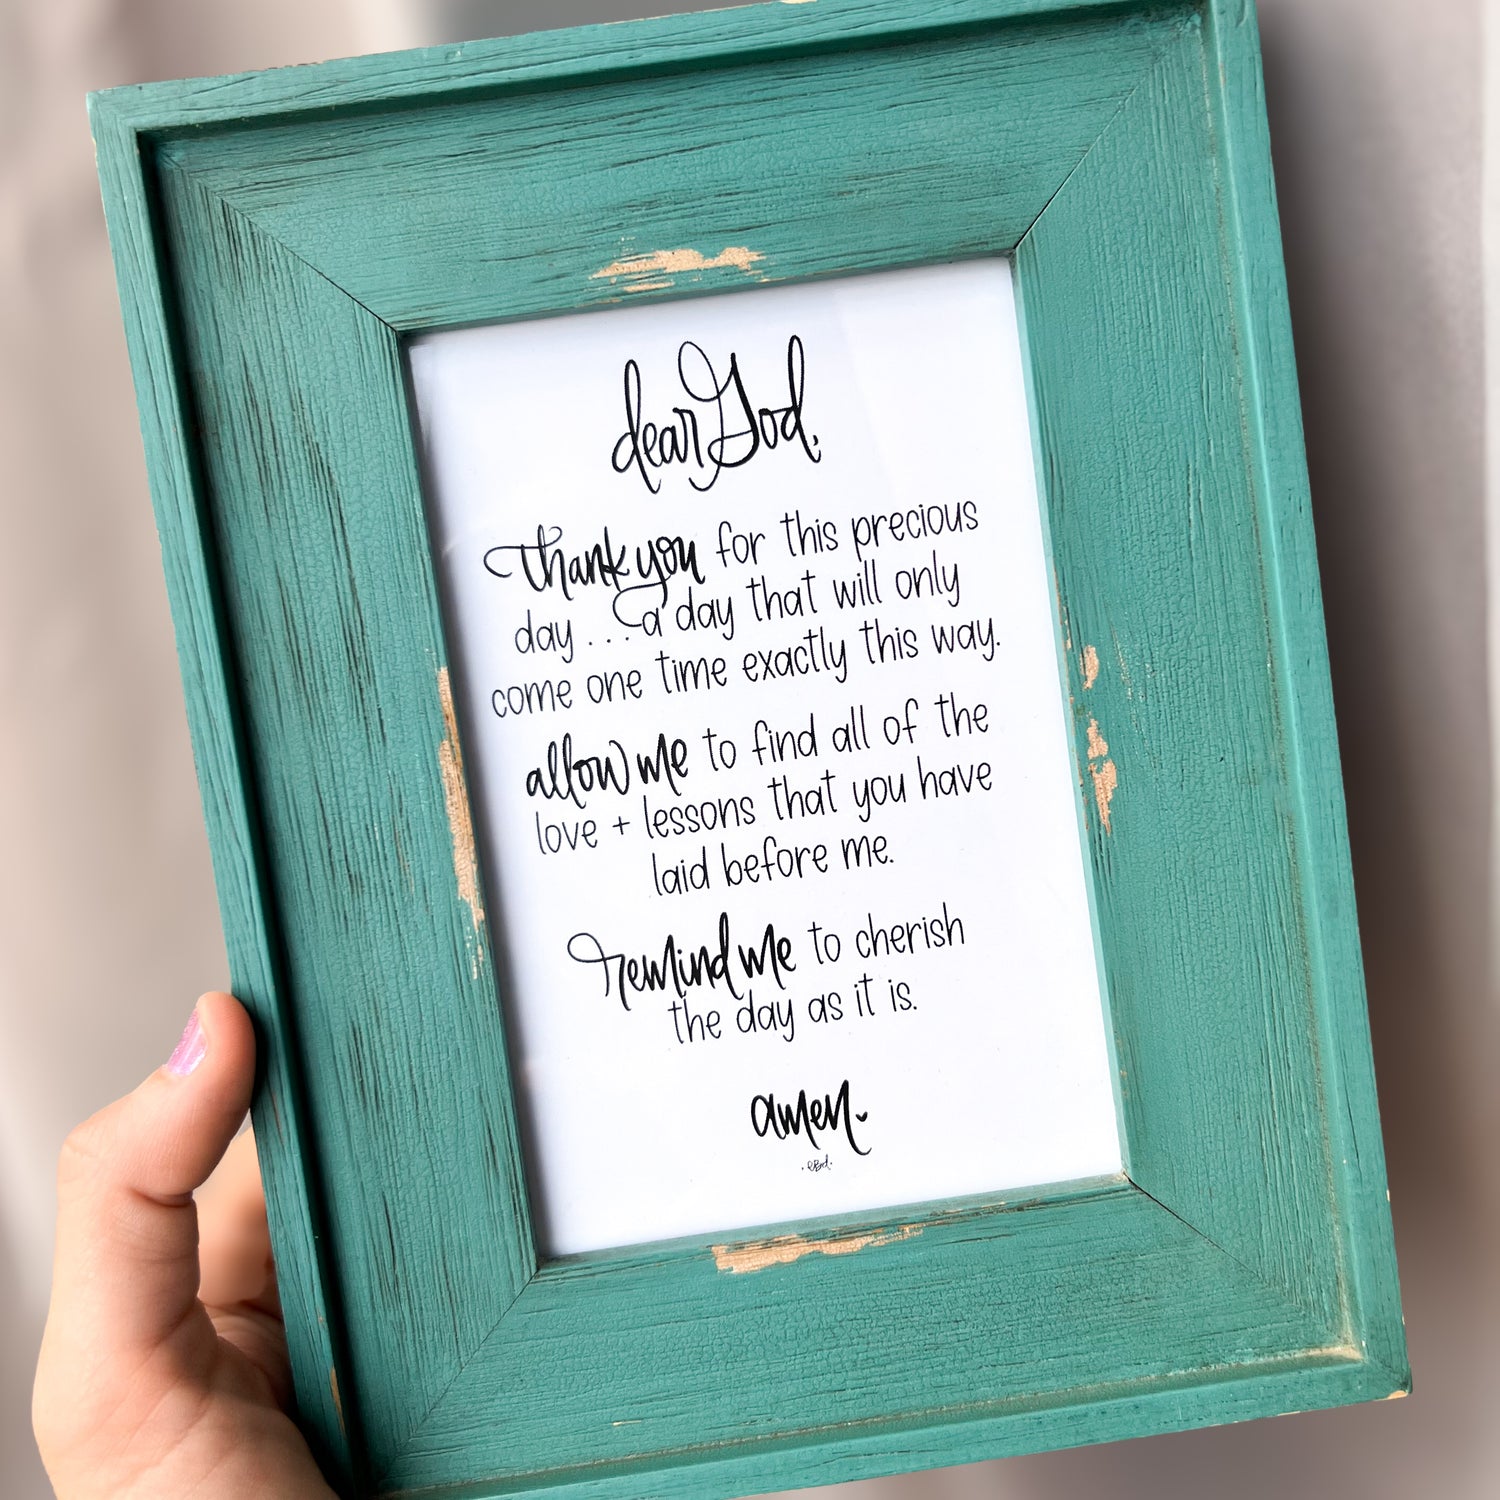 dear God,
thank you for this precious
day . . . a day that will only
come one time exactly this way.
allow me to find all of the
love + lessons that you have
laid before me.
remind me to cherish
the day as it is.
amen.